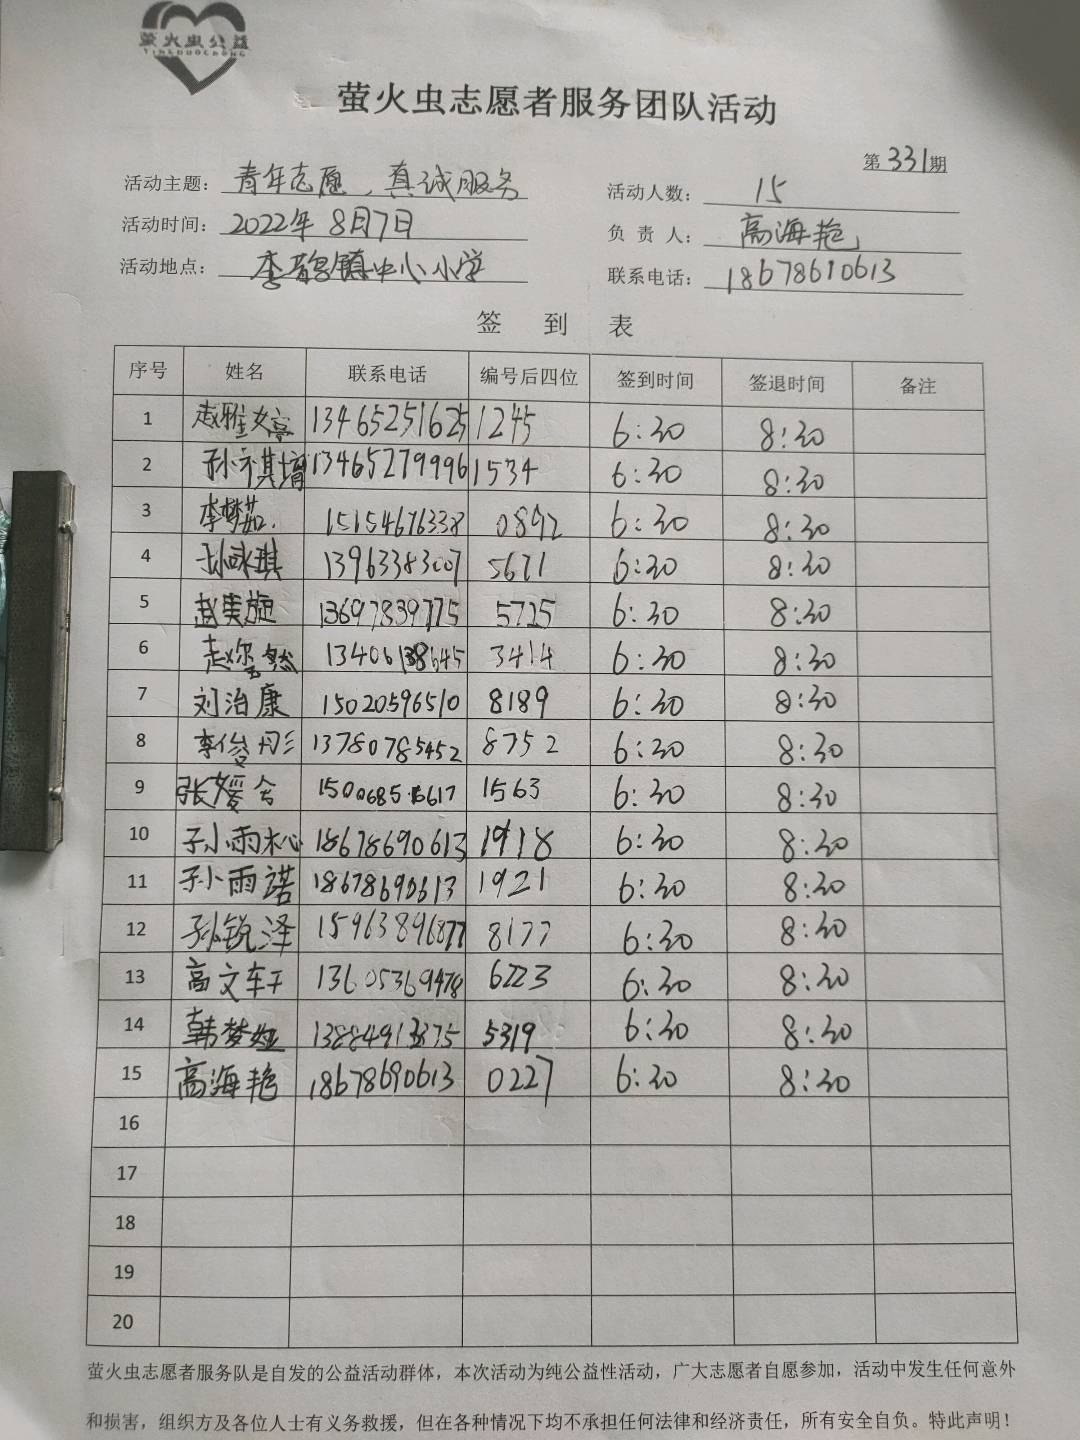 萤火虫公益
YINGHUOCHONG
萤火虫志愿者服务团队活动
第331期
活动主题：青年志愿、真诚服务 活动人数：15
活动时间：2022年8月7日 负责人：高海艳
活动地点：镇中心小学 联系电话：18678690613
签到表
序号 姓名 联系电话 编号后四位 签到时间 签退时间 备注
1 赵雅婷 13465251625 1245 6:30 8:30
2 孙祺增 13465279996 1534 6:30 8:30
3 李梦茹 15154676338 0892 6:30 8:30
4 孙咏琪 13963383007 5671 6:30 8:30
5 赵美旋 13697839775 5725 6:30 8:30
6 赵然 13406138645 3414 6:30 8:30
7 刘治康 15020596510 8189 6:30 8:30
8 李俊彤 13780785452 8752 6:30 8:30
9 张媛 1563 6:30 8:30
10 孙雨沁 18678690613 1918 6:30 8:30
11 孙雨诺 18678690613 1921 6:30 8:30
12 孙锐泽 15963896877 8177 6:30 8:30
13 高文轩 13605369478 6223 6:30 8:30
14 韩梦娅 13884913875 5319 6:30 8:30
15 高海艳 18678690613 0227 6:30 8:30
16
17
18
19
20
萤火虫志愿者服务队是自发的公益活动群体，本次活动为纯公益性活动，广大志愿者自愿参加，活动中发生任何意外
和损害，组织方及各位人士有义务救援，但在各种情况下均不承担任何法律和经济责任，所有安全自负。特此声明！